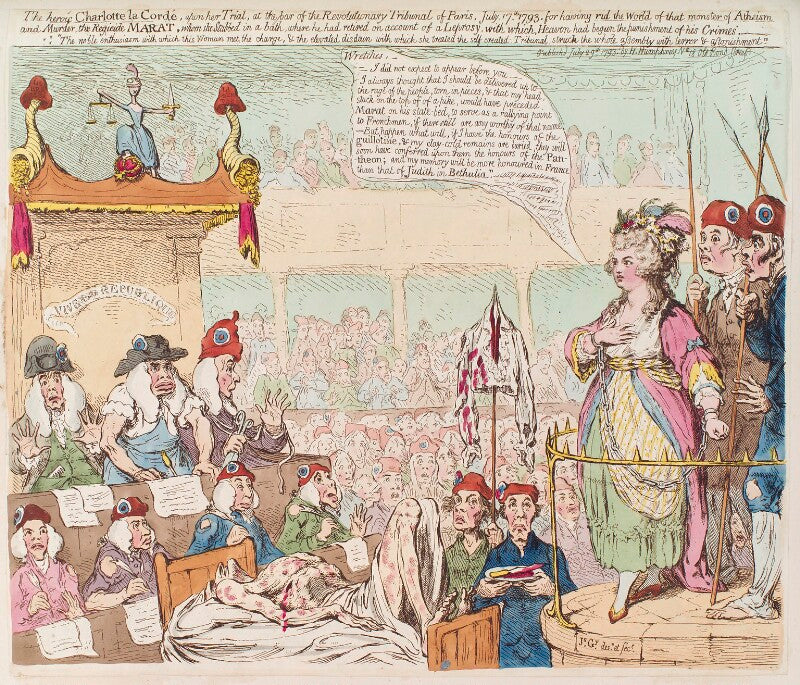 The heroic Charlotte la Cordé, upon her Trial, at the bar of the Revolutionary Tribunal of Paris, July 17th 1793. for having rid the World of that monster of Atheism
and Murder, the Regicide MARAT, whom she Stabbed in a bath, where he had retired on account of a Leprosy, with which, Heaven had begun the punishment of his Crimes.
"The noble enthusiasm with which this Woman met the charge, & the elevated disdain with which she treated the self created Tribunal, struck the whole assembly with terror & astonishment."
Publish'd July 29th 1793. by H. Humphrey No 18 Old Bond Street
Wretches,
— I did not expect to appear before you —
I always thought that I should be delivered up to
the rage of the people, torn in pieces, & that my head,
stuck on the top of a pike, would have preceded
Marat on his state-bed, to serve as a rallying point
to Frenchmen, if there still are any worthy of that name.
—But, happen what will, if I have the honours of the
guillotine, & my clay-cold remains are buried, they will
soon have conferred upon them the honours of the Pan-
theon; and my memory will be more honoured in France
than that of Judith in Bethulia."
VIVE LA REPUBLIQUE
Js. Gy. des. et fect.